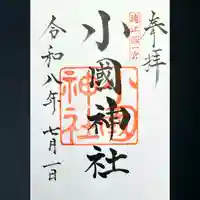 奉拝
遠江國一宮
小國神社
小國神社
令和八年七月一日